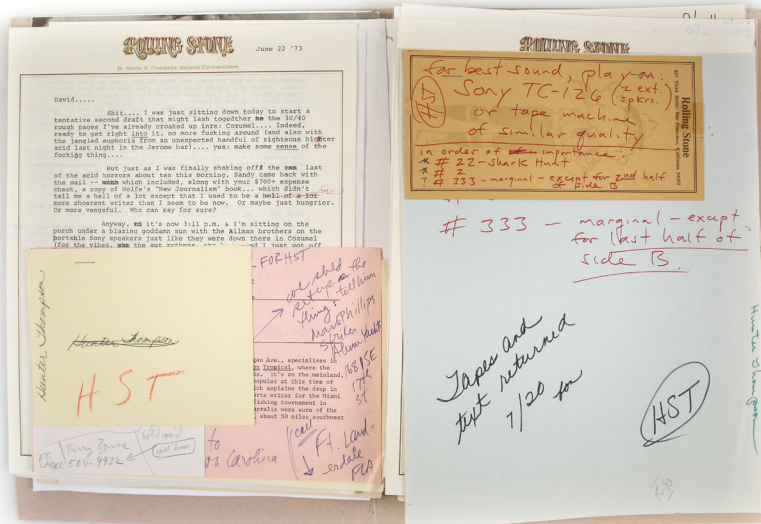 ROLLING STONE
June 22 '73
Dr. Hunter S. Thompson, National Correspondent
David.....
Shit.... I was just sitting down today to start a
tentative second draft that might lash together the 30/40
rough pages I've already croaked up inre: Cozumel.... Indeed,
ready to get right into it, no more fucking around (and also with
the jangled euphoria from an unexpected handful of righteous blotter
acid last night in the Jerome bar).... yes: make some sense of the
fucking thing....
But just as I was finally shaking off the last
of the acid horrors about ten this morning, Sandy came back with
the mail -- which included, along with your $700+ expense
check, a copy of Wolfe's "New Journalism" book... which didn't
tell me a hell of a lot except that I used to be a hell of a lot
more choerent writer than I seem to be now. Or maybe just hungrier.
Or more vengeful. Who can say for sure?
Anyway, it's now 3:11 p.m. & I'm sitting on the
porch under a blazing goddamn sun with the Allman brothers on the
portable Sony speakers just like they were down there in Cozumel
(for the vibes, the gut rythms, I just got off
Hunter Thompson
Hunter Thompson
HST
FOR HST
we shld
setup the
thing: tell him
Mark Phillips
Striker
Alum Yacht
1681 SE
17th
ST
gan Ave., specializes in
Tropical, where the
It's on the mainland,
opopular at this time of
ich explains the drop in
orts writer for the Miami
fishing tournament in
apralia were sure of the
about 50 miles southwest
FT. LAUD
Terry
524-9932
call him
to
Carolina
call
Ft. Laud-
erdale
FLA
ROLLING STONE
for best sound, play on:
HST
Sony TC-126 (2 ext. spkrs.)
or tape machine
of similar quality
in order of importance
# 22 - Shark Hunt
# 2
? # 333 - marginal - except for 2nd half
of side B
Rolling Stone
# 333 - marginal - except
for last half of
side B.
Tapes and
text returned
7/20
HST
Hunter Thompson